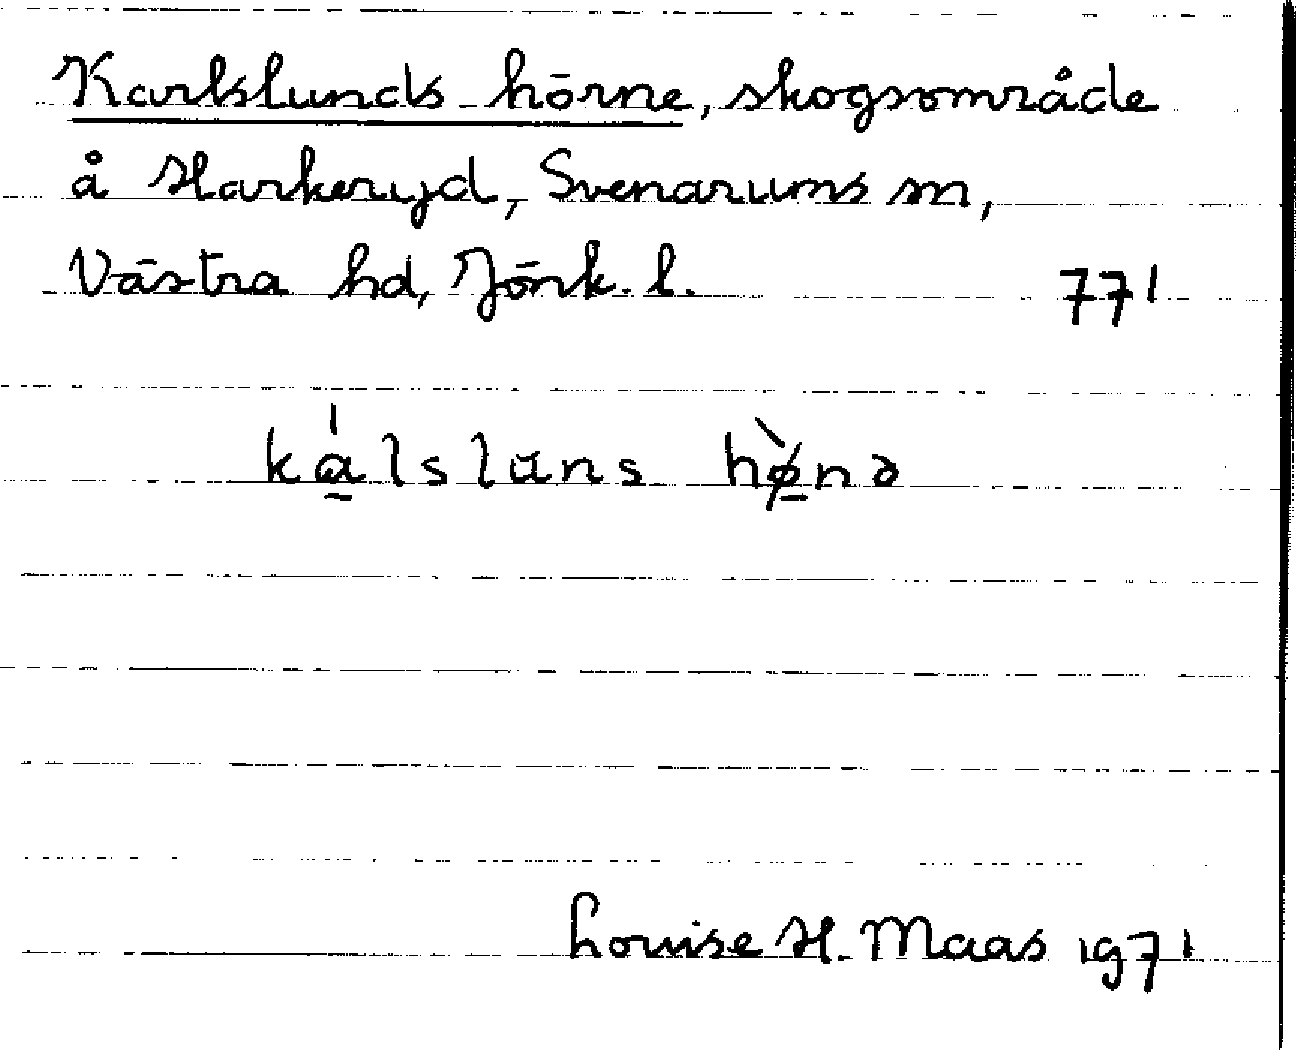 Karlslunds hörne, skogsområde
å Harkeryd, Svenarums sn,
Västra hd, Jönk. l. 771
ká̱lslūns hø̱̀nə
Louise H. Maas 1971